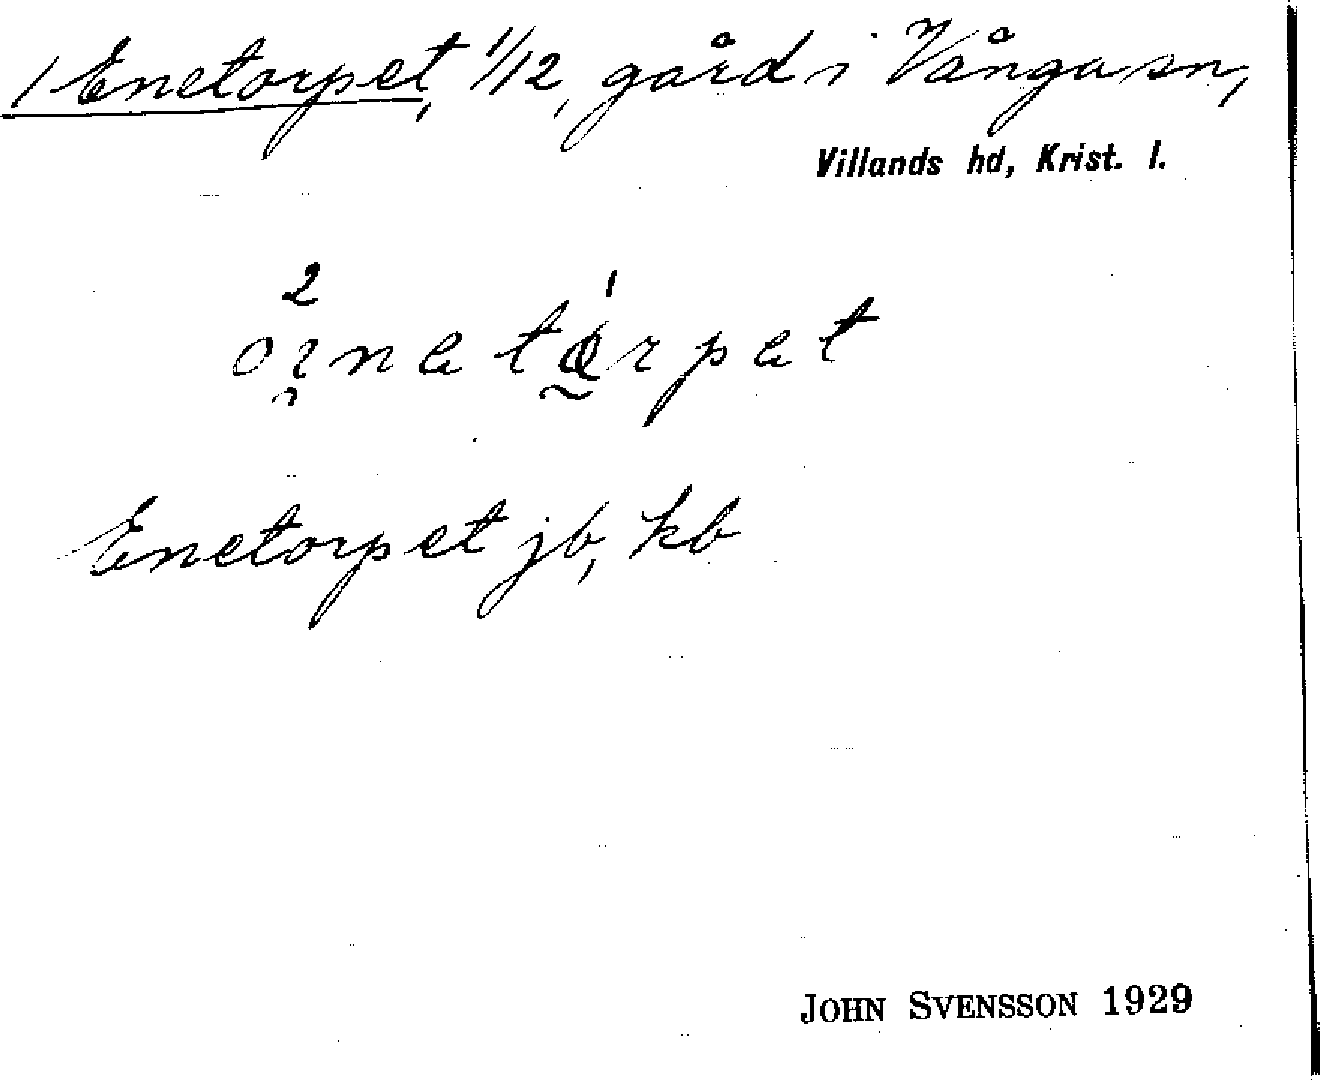 1 Enetorpet, 1/12, gård i Vånga sn,
Villands hd, Krist. l.
Enetorpet jb, kb
JOHN SVENSSON 1929